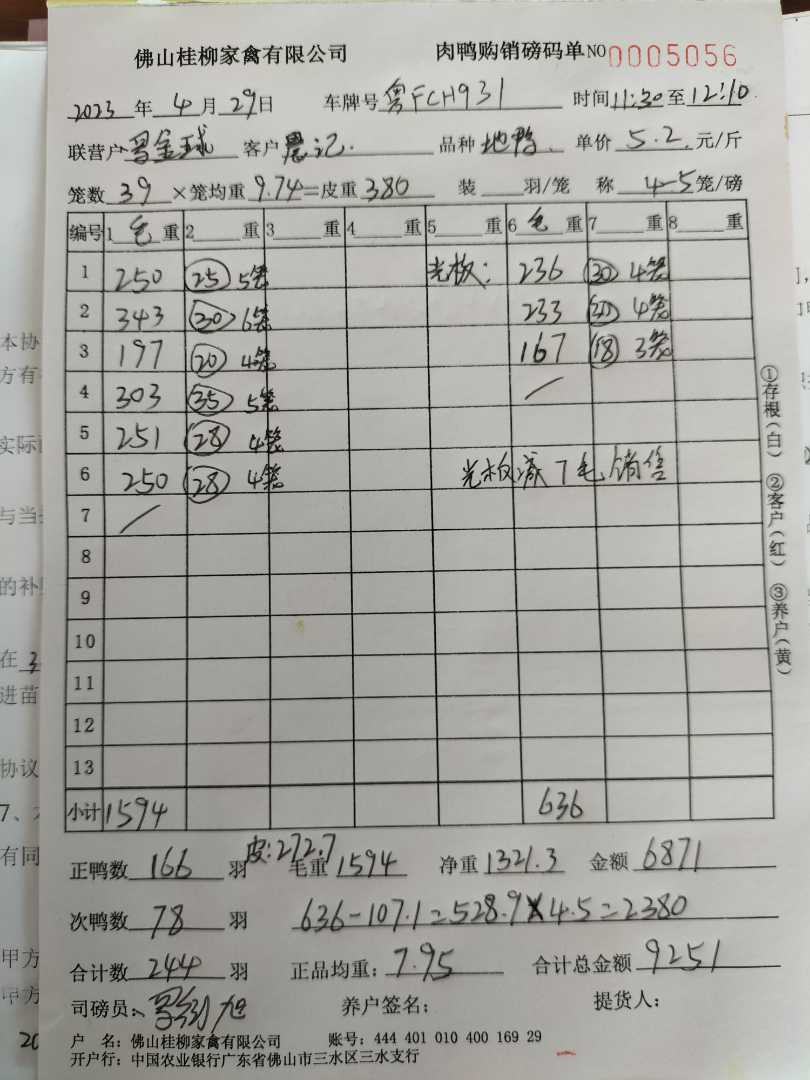 佛山桂柳家禽有限公司 肉鸭购销磅码单 NO 0005056
2023 年 4 月 29 日 车牌号 粤FCH931 时间 11:30 至 12:10
联营户 金球 客户 记. 品种 地鸭. 单价 5.2 元/斤
笼数 39 ×笼均重 9.74 =皮重 380 装 羽/笼 称 4-5 笼/磅
编号 1 毛 重 2 重 3 重 4 重 5 重 6 毛 重 7 重 8 重
1 250 25 5笼 光板: 236 30 4笼
2 343 30 6笼 233 30 4笼
3 197 20 4笼 167 18 3笼
4 303 35 5笼 /
5 251 28 4笼
6 250 28 4笼 光板减7毛销售
7 /
8
9
10
11
12
13
小计 1594 636
正鸭数 166 羽 皮:272.7 毛重 1594 净重 1321.3 金额 6871
次鸭数 78 羽 636-107.1=528.9×4.5=2380
合计数 244 羽 正品均重: 7.95 合计总金额 9251
司磅员: 旭 养户签名: 提货人:
户 名: 佛山桂柳家禽有限公司 账号: 444 401 010 400 169 29
开户行: 中国农业银行广东省佛山市三水区三水支行
①存根(白) ②客户(红) ③养户(黄)
本协
方有
实际
与当
的补
在 3
进苗
协议
7、
有同
甲方
甲方
20